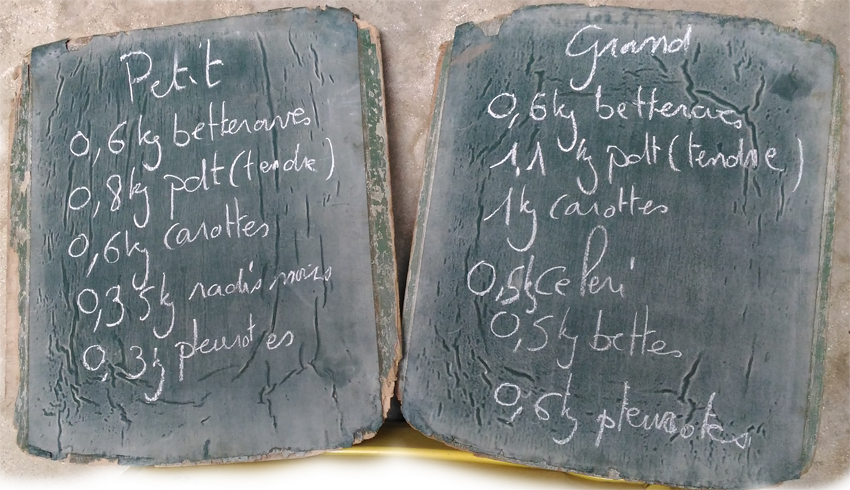 Petit
0,6kg betteraves
0,8kg pdt (tendre)
0,6kg carottes
0,35kg radis noirs
0,3kg pleurotes
Grand
0,6kg betteraves
1,1 kg pdt (tendre)
1kg carottes
0,5kg celeri
0,5kg bettes
0,6kg pleurotes